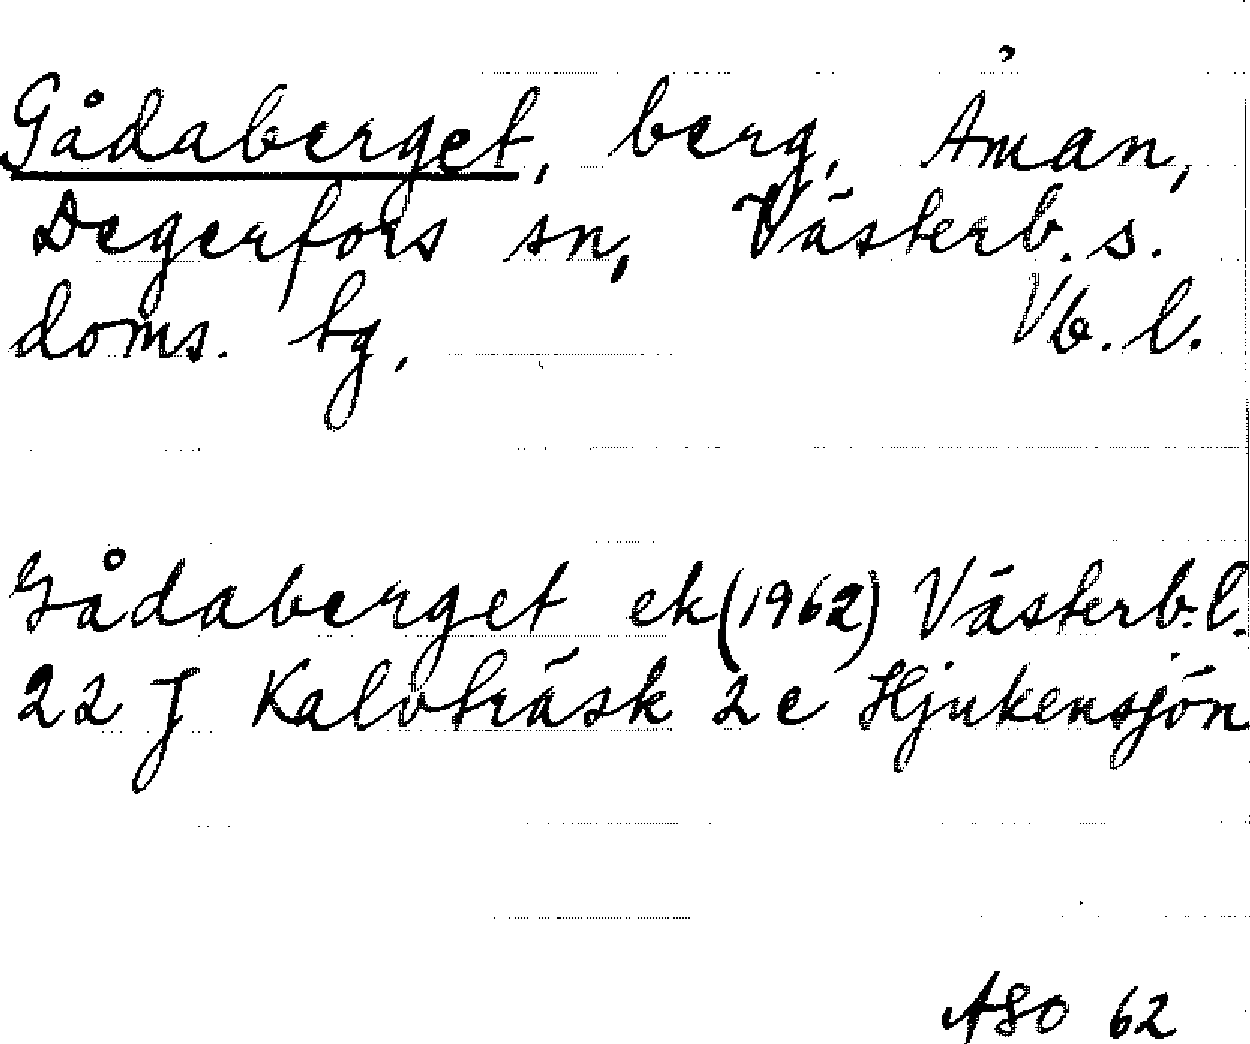 Gådaberget, berg, Åman,
Degerfors sn, Västerb. s.
doms. tg. Vb. l.
Gådaberget ek (1962) Västerb. l.
22 J Kalvträsk 2 c Hjukensjön
ASO 62